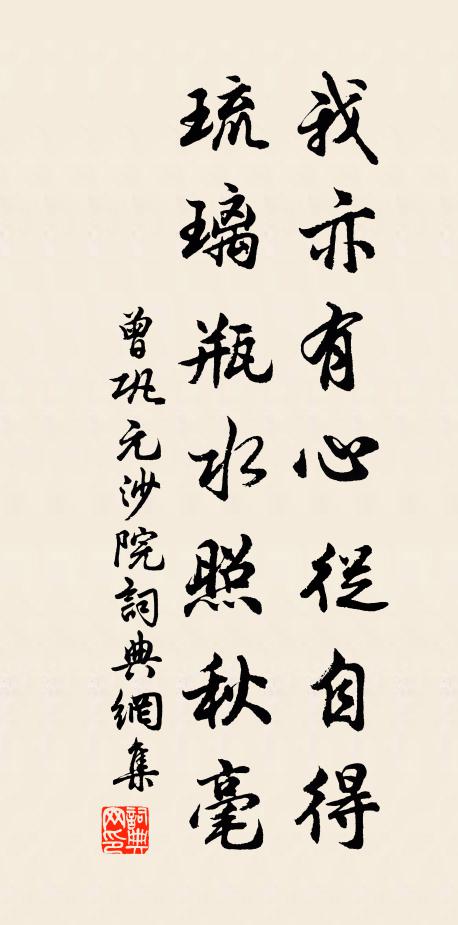 我亦有心從自得
琉璃瓶水照秋毫
曾巩元沙院詞典網集
詞典网印